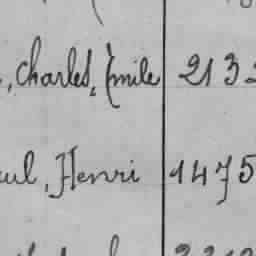 , Charles, Emile 213
ul, Henri 1475